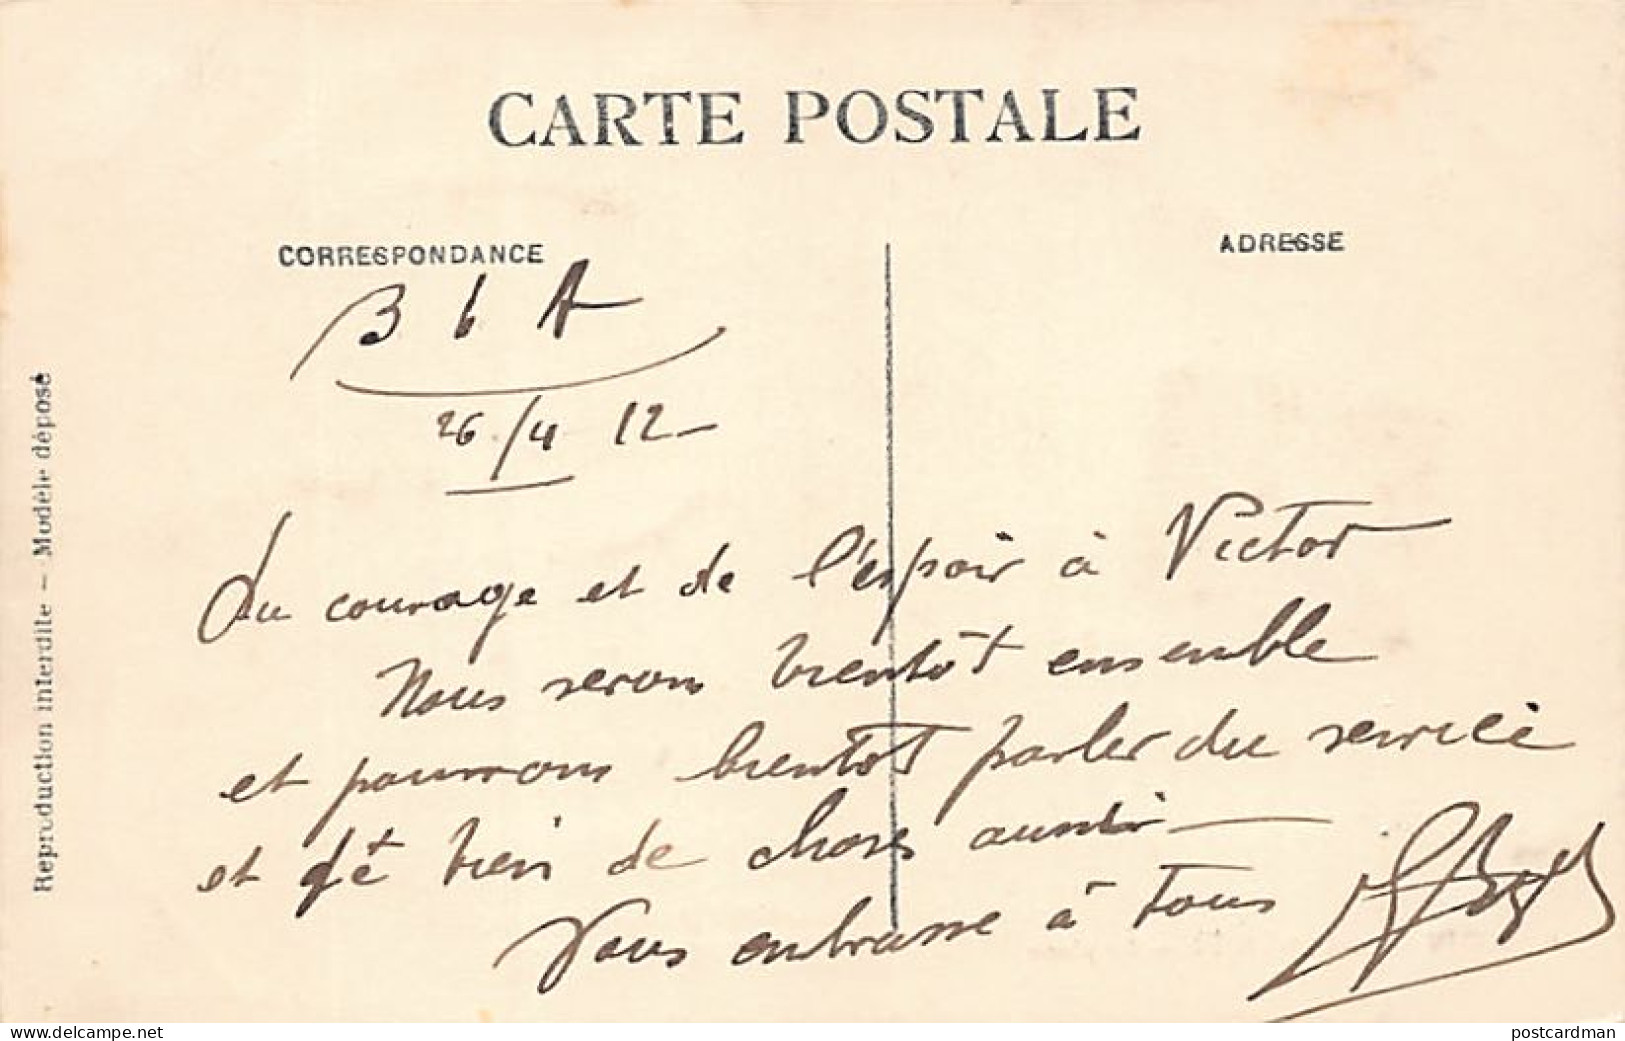 CARTE POSTALE
CORRESPONDANCE
ADRESSE
B b A
26/4 12
Du courage et de l'espoir à Victor
Nous serons bientôt ensemble
et pourrons bientot parler du service
et bien de choses aussi
Vous embrasse à tous
Reproduction interdite — Modèle déposé
http://www.delcampe.net
postcardman